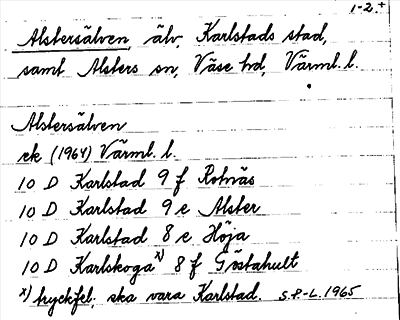 1-2.+
Alstersälven, älv, Karlstads stad,
samt Alsters sn, Väse hd, Värml. l.
Alstersälven
ek (1964) Värml. l.
10 D Karlstad 9 f Rotnäs
10 D Karlstad 9 e Alster
10 D Karlstad 8 e Höja
10 D Karlskoga x) 8 f Göstahult
x) tryckfel, ska vara Karlstad. S.P-L. 1965